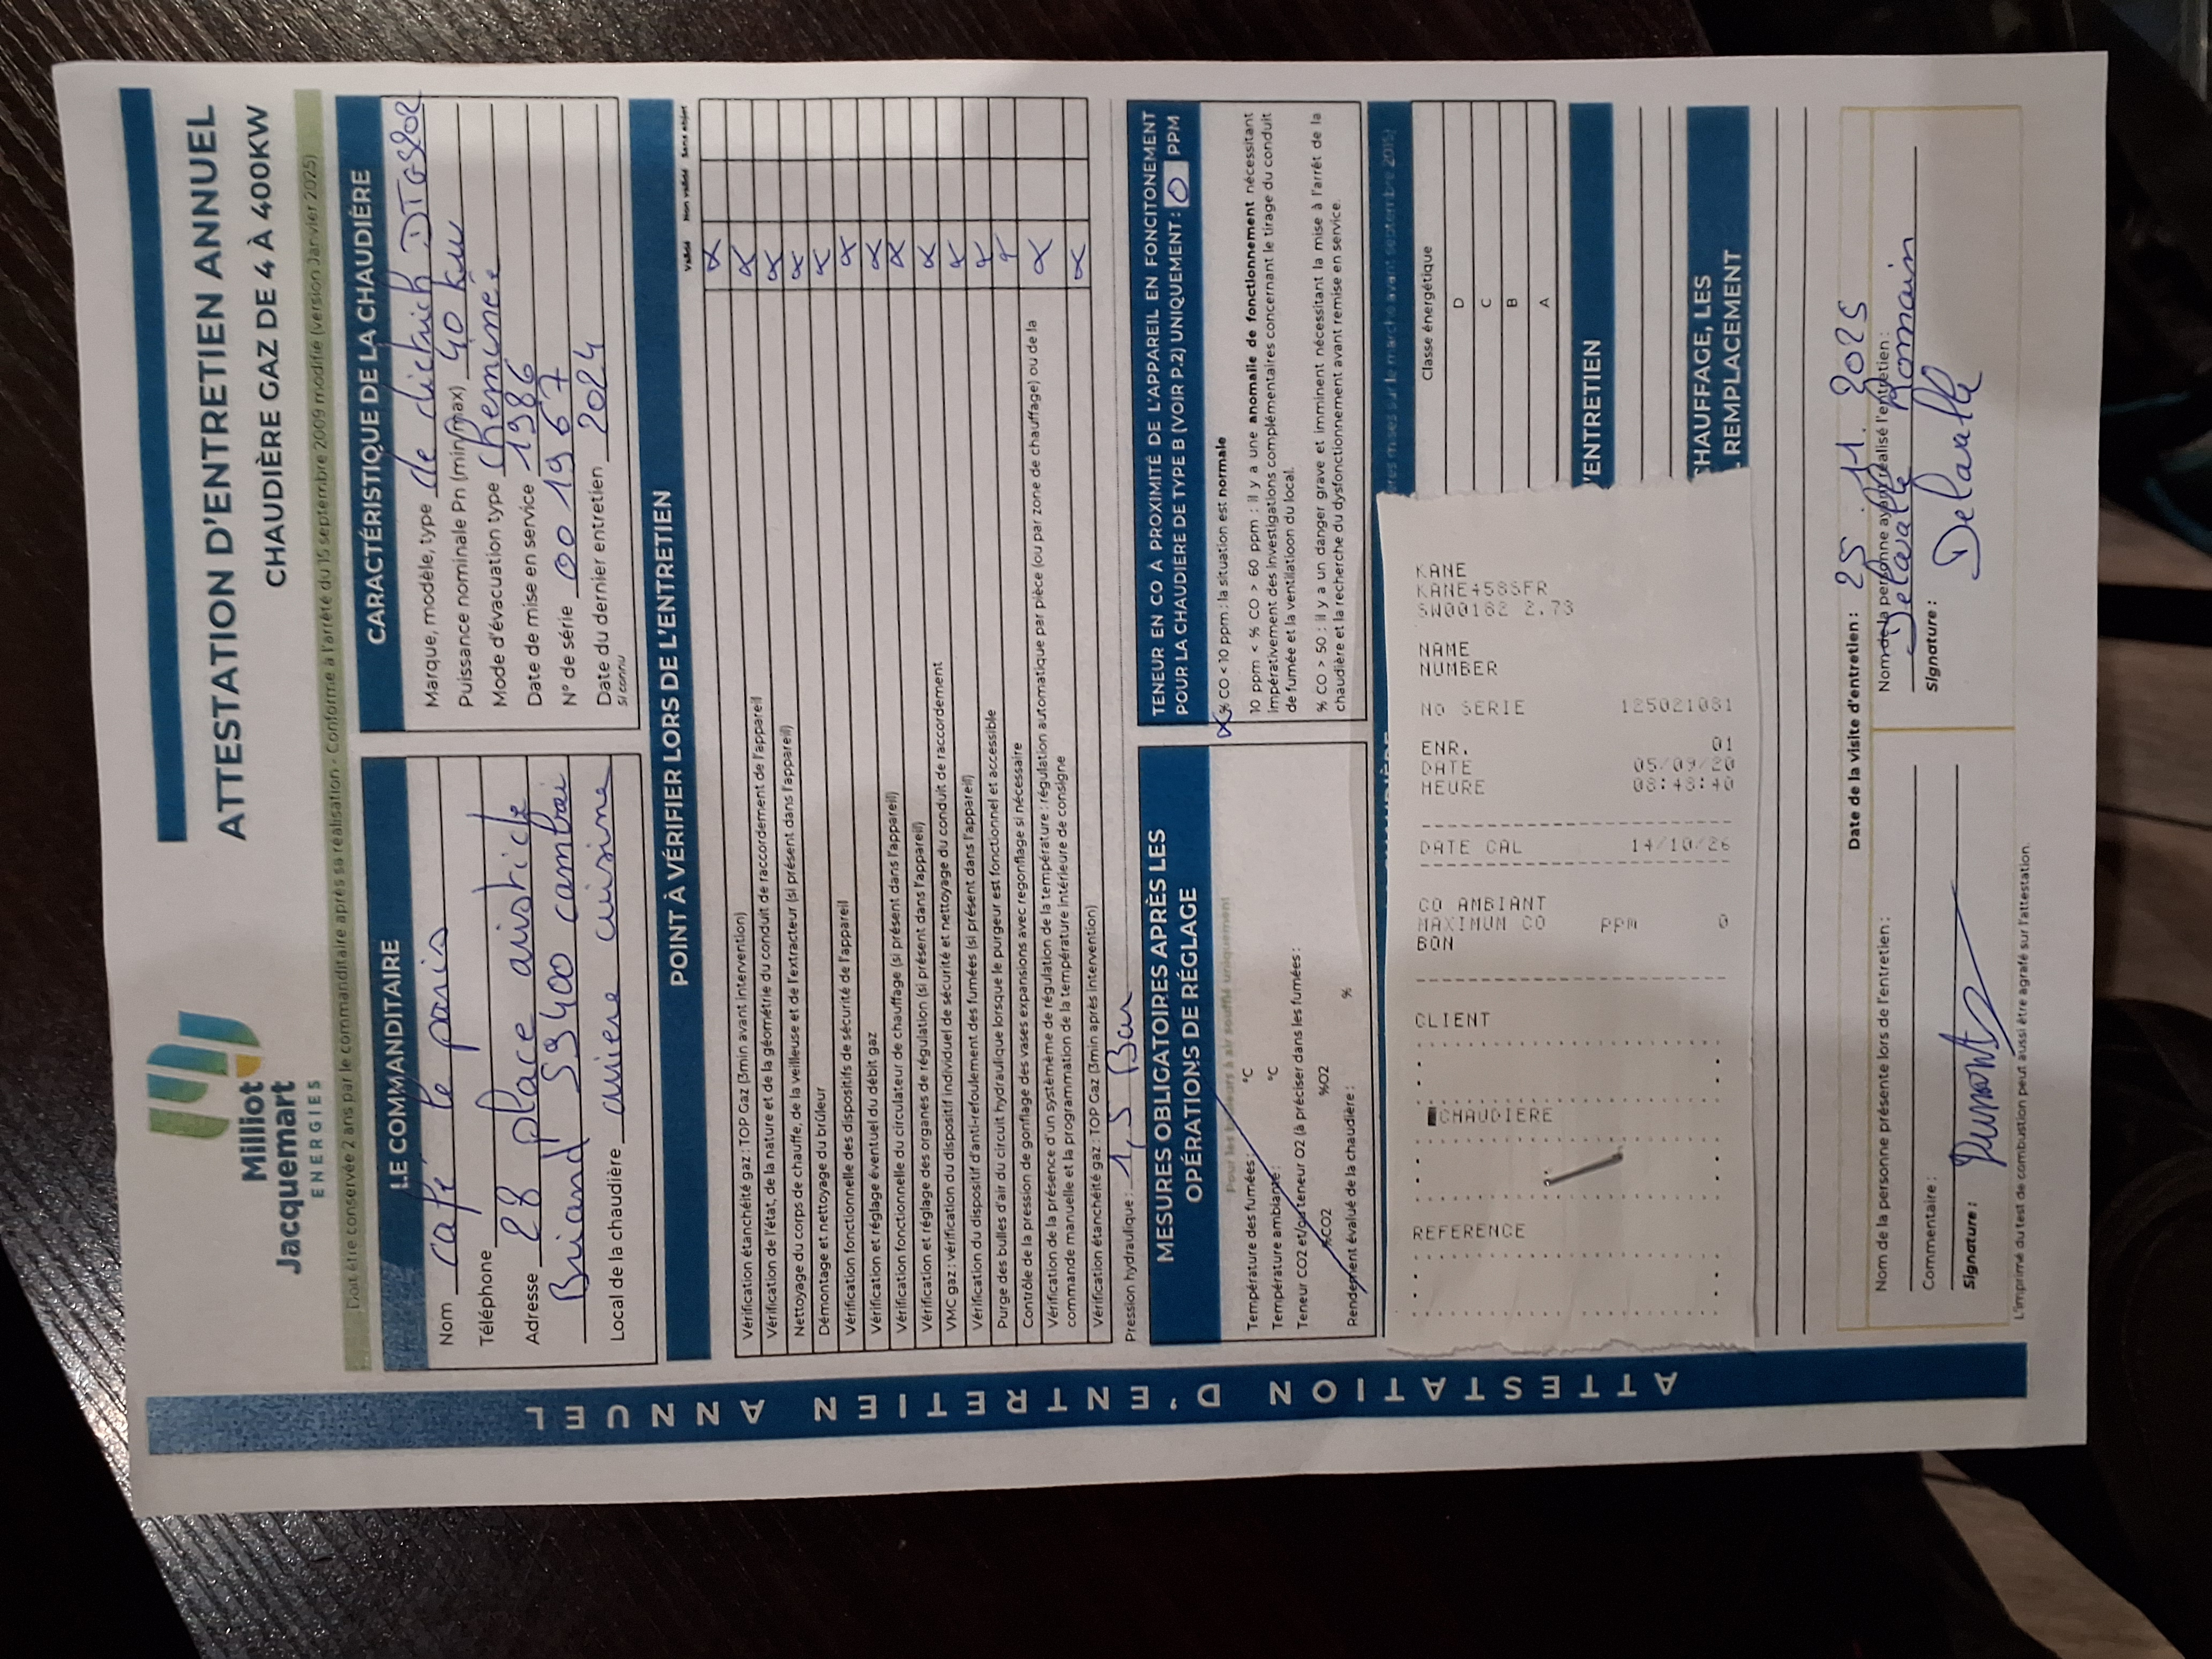 Milliot
Jacquemart
ENERGIES
ATTESTATION D'ENTRETIEN ANNUEL
CHAUDIÈRE GAZ DE 4 À 400KW
Doit être conservée 2 ans par le commanditaire après sa réalisation - Conforme à l'arrêté du 15 septembre 2009 modifié (version Janvier 2025)
ATTESTATION D'ENTRETIEN ANNUEL
LE COMMANDITAIRE
Nom café le paris
Téléphone
Adresse 28 place aristide
Briand 59400 cambrai
Local de la chaudière arriere cuisine
CARACTÉRISTIQUE DE LA CHAUDIÈRE
Marque, modèle, type de dietrich DTG
Puissance nominale Pn (min/max) 40 kw
Mode d'évacuation type cheminée
Date de mise en service 1986
N° de série 001967
Date du dernier entretien 2024
si connu
POINT À VÉRIFIER LORS DE L'ENTRETIEN
Validé Non validé Sans objet
Vérification étanchéité gaz : TOP Gaz (3min avant intervention) X
Vérification de l'état, de la nature et de la géométrie du conduit de raccordement de l'appareil X
Nettoyage du corps de chauffe, de la veilleuse et de l'extracteur (si présent dans l'appareil) X
Démontage et nettoyage du brûleur X
Vérification fonctionnelle des dispositifs de sécurité de l'appareil X
Vérification et réglage éventuel du débit gaz X
Vérification fonctionnelle du circulateur de chauffage (si présent dans l'appareil) X
Vérification et réglage des organes de régulation (si présent dans l'appareil) X
VMC gaz : vérification du dispositif individuel de sécurité et nettoyage du conduit de raccordement X
Vérification du dispositif d'anti-refoulement des fumées (si présent dans l'appareil) X
Purge des bulles d'air du circuit hydraulique lorsque le purgeur est fonctionnel et accessible X
Contrôle de la pression de gonflage des vases expansions avec regonflage si nécessaire X
Vérification de la présence d'un système de régulation de la température : régulation automatique par pièce (ou par zone de chauffage) ou de la
commande manuelle et la programmation de la température intérieure de consigne X
Vérification étanchéité gaz : TOP Gaz (3min après intervention) X
Pression hydraulique : 1,5 Bar
MESURES OBLIGATOIRES APRÈS LES
OPÉRATIONS DE RÉGLAGE
Pour les brûleurs à air soufflé uniquement
Température des fumées : °C
Température ambiante : °C
Teneur CO2 et/ou teneur O2 (à préciser dans les fumées :
%CO2 %O2
Rendement évalué de la chaudière : %
TENEUR EN CO À PROXIMITÉ DE L'APPAREIL EN FONCITONEMENT
POUR LA CHAUDIÈRE DE TYPE B (VOIR P.2) UNIQUEMENT : 0 PPM
X % CO < 10 ppm : la situation est normale
10 ppm < % CO > 60 ppm : il y a une anomalie de fonctionnement nécessitant
impérativement des investigations complémentaires concernant le tirage du conduit
de fumée et la ventilatioon du local.
% CO > 50 : il y a un danger grave et imminent nécessitant la mise à l'arrêt de la
chaudière et la recherche du dysfonctionnement avant remise en service.
mises sur le marché avant septembre 2015)
Classe énergétique
D
C
B
A
'ENTRETIEN
CHAUFFAGE, LES
REMPLACEMENT
KANE
KANE458SFR
SW00182 2.73
NAME
NUMBER
NO SERIE 125021081
ENR. 01
DATE 05/09/20
HEURE 08:48:40
DATE CAL 14/10/26
CO AMBIANT
MAXIMUN CO PPM 0
BON
CLIENT
CHAUDIERE
REFERENCE
Date de la visite d'entretien : 25 11 2025
Nom de la personne présente lors de l'entretien :
Commentaire :
Signature :
Nom de la personne ayant réalisé l'entretien :
Delavalle Romain
Signature : Delavalle
L'imprimé du test de combustion peut aussi être agrafé sur l'attestation.